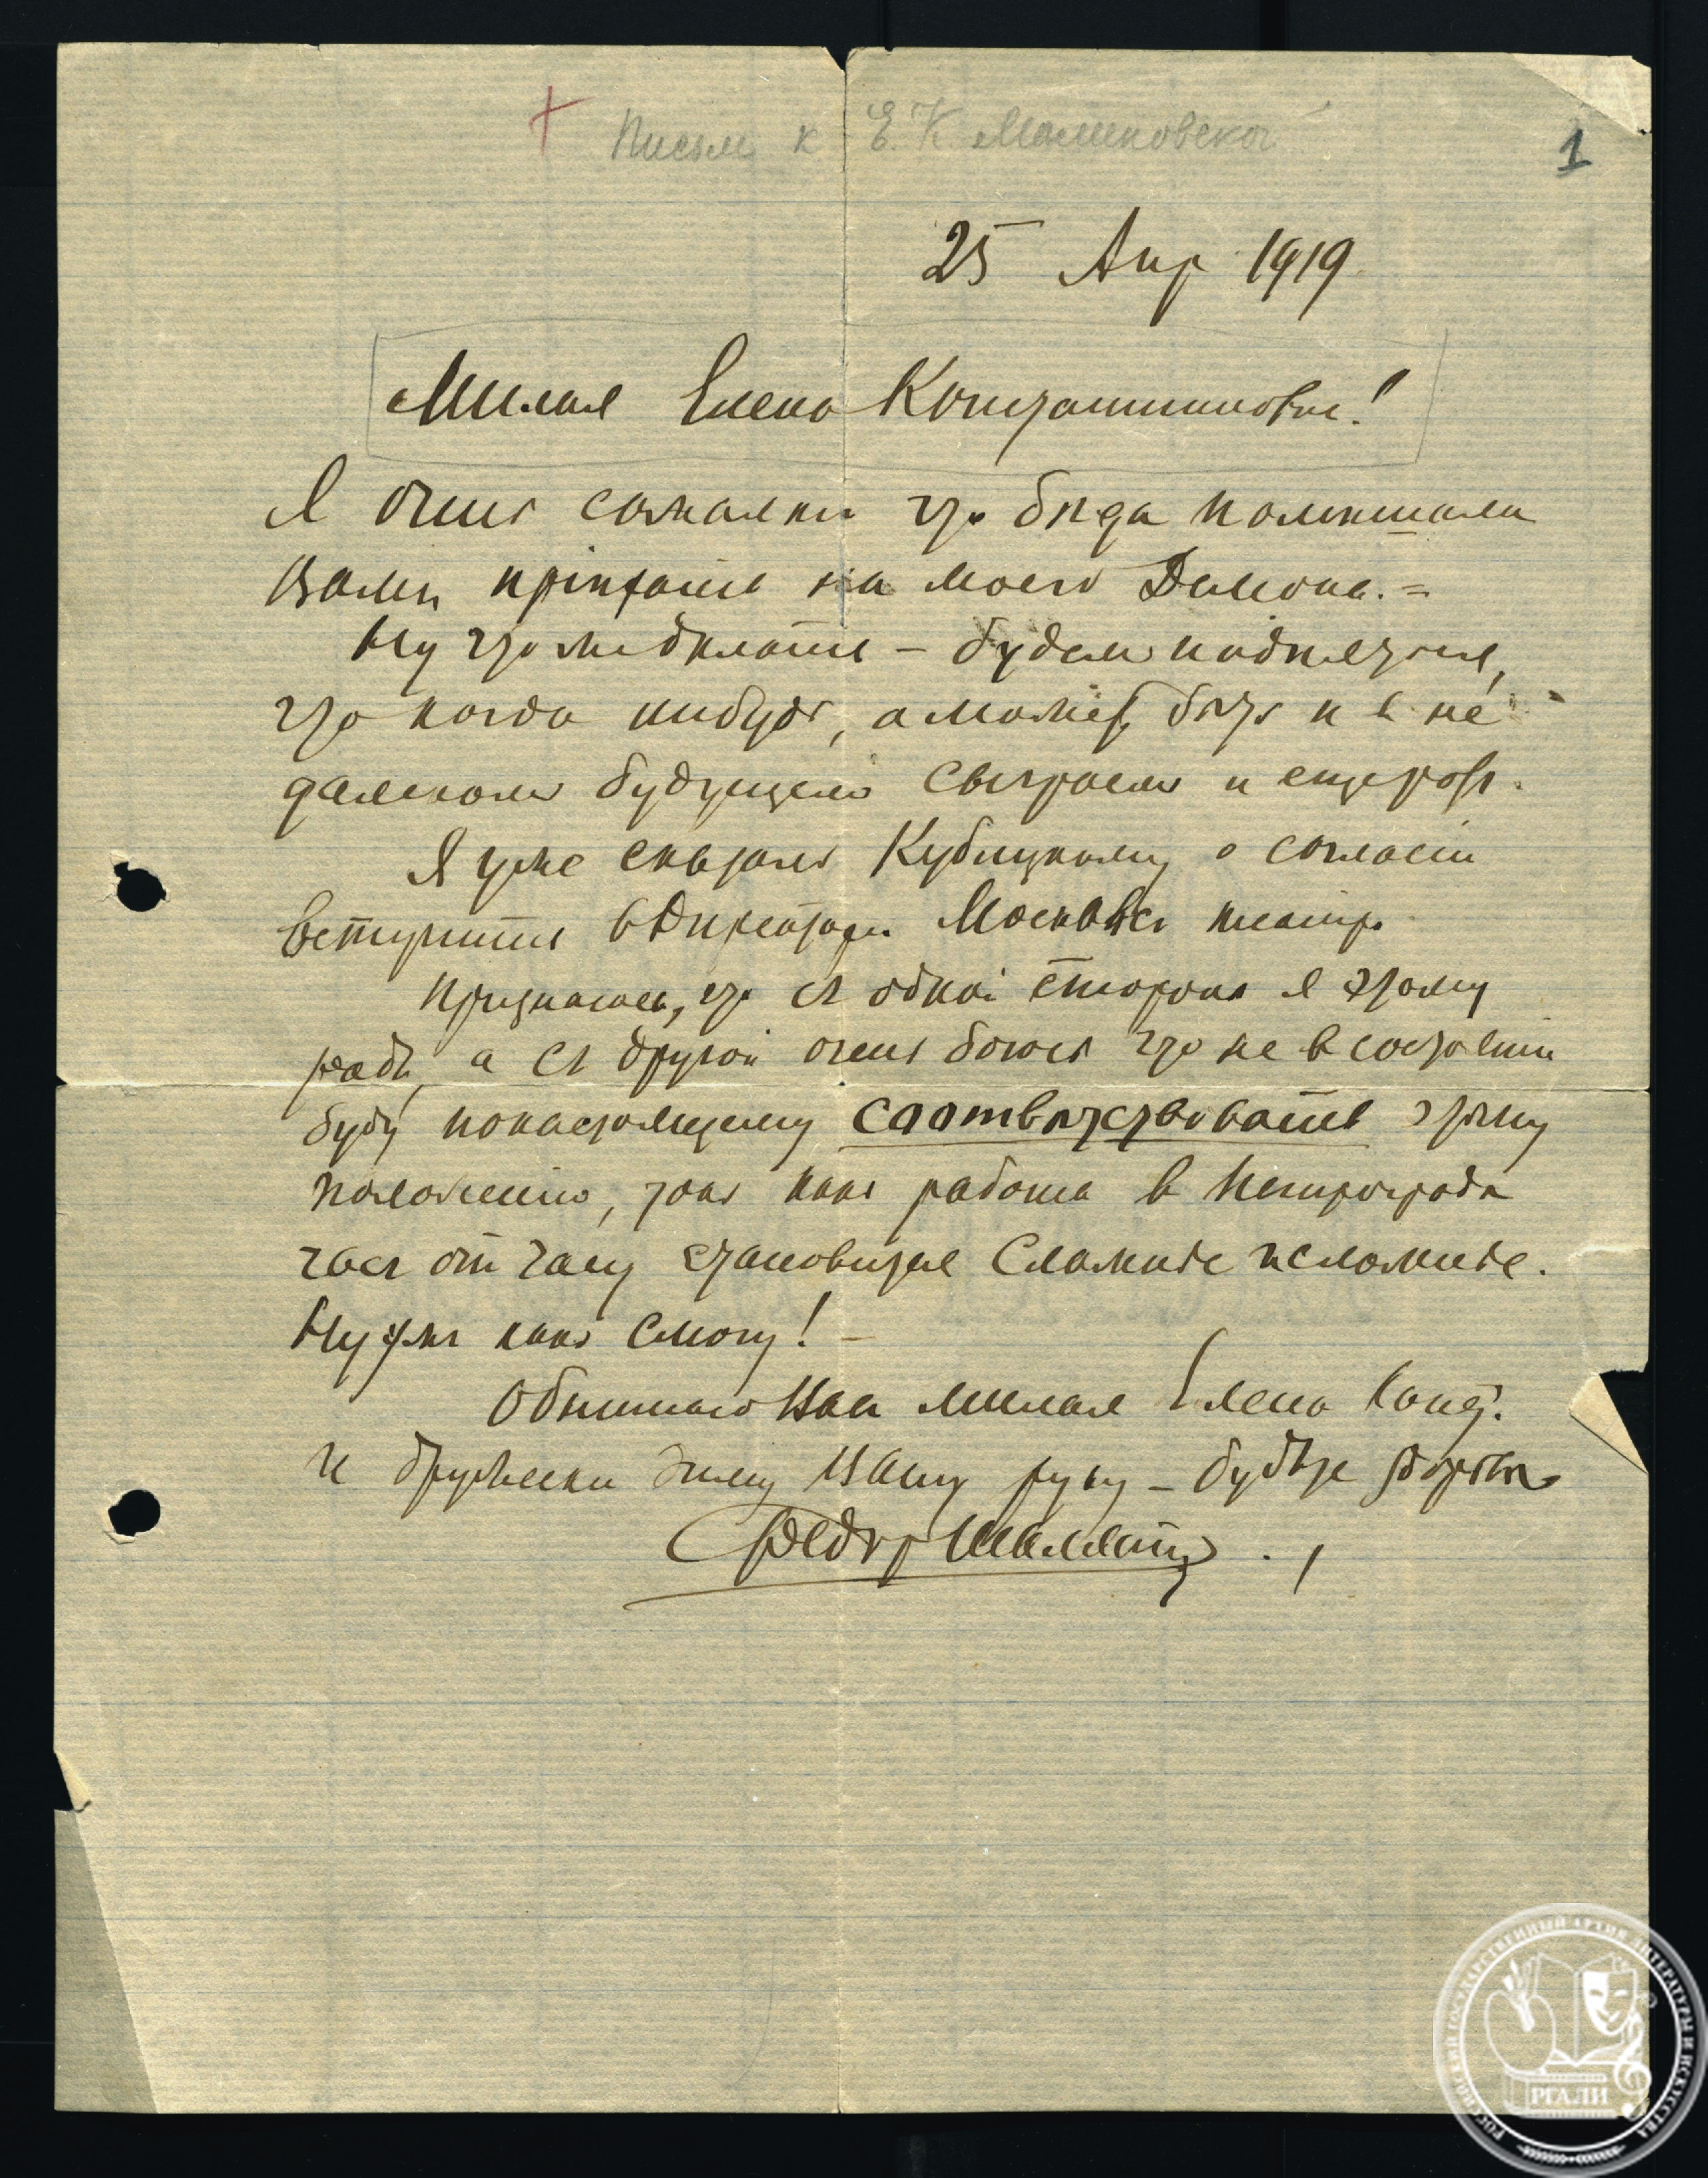 Письма к Е. К. Малиновской
1
25 Апр 1919
Милая Елена Константиновна!
Я очень сожалею что бѣда помешала
Вамъ пріѣхать на моего Демона. =
Ну что же дѣлать – будем надѣяться,
что когда нибудь, а можетъ быть и в не
далеком будущем сыграемъ и еще разъ.
Я уже сказалъ Кублицкому о согласіи
вступить в Директора Москвск театр.
Признаюсь, что съ одной стороны я этому
радъ, а съ другой очень боюсь что не в состояніи
буду понастоящему соотвѣтствовать этому
положению, такъ какъ работа в Петроградѣ
часъ от часу становится сложнѣе и сложнѣе.
Ну ужъ какъ смогу! –
Обнимаю Васъ милая Елена Конст.
и дружески жму Вашу руку – будьте здоровы
Федор Шаляпин
РОССИЙСКИЙ ГОСУДАРСТВЕННЫЙ АРХИВ ЛИТЕРАТУРЫ И ИСКУССТВА
РГАЛИ